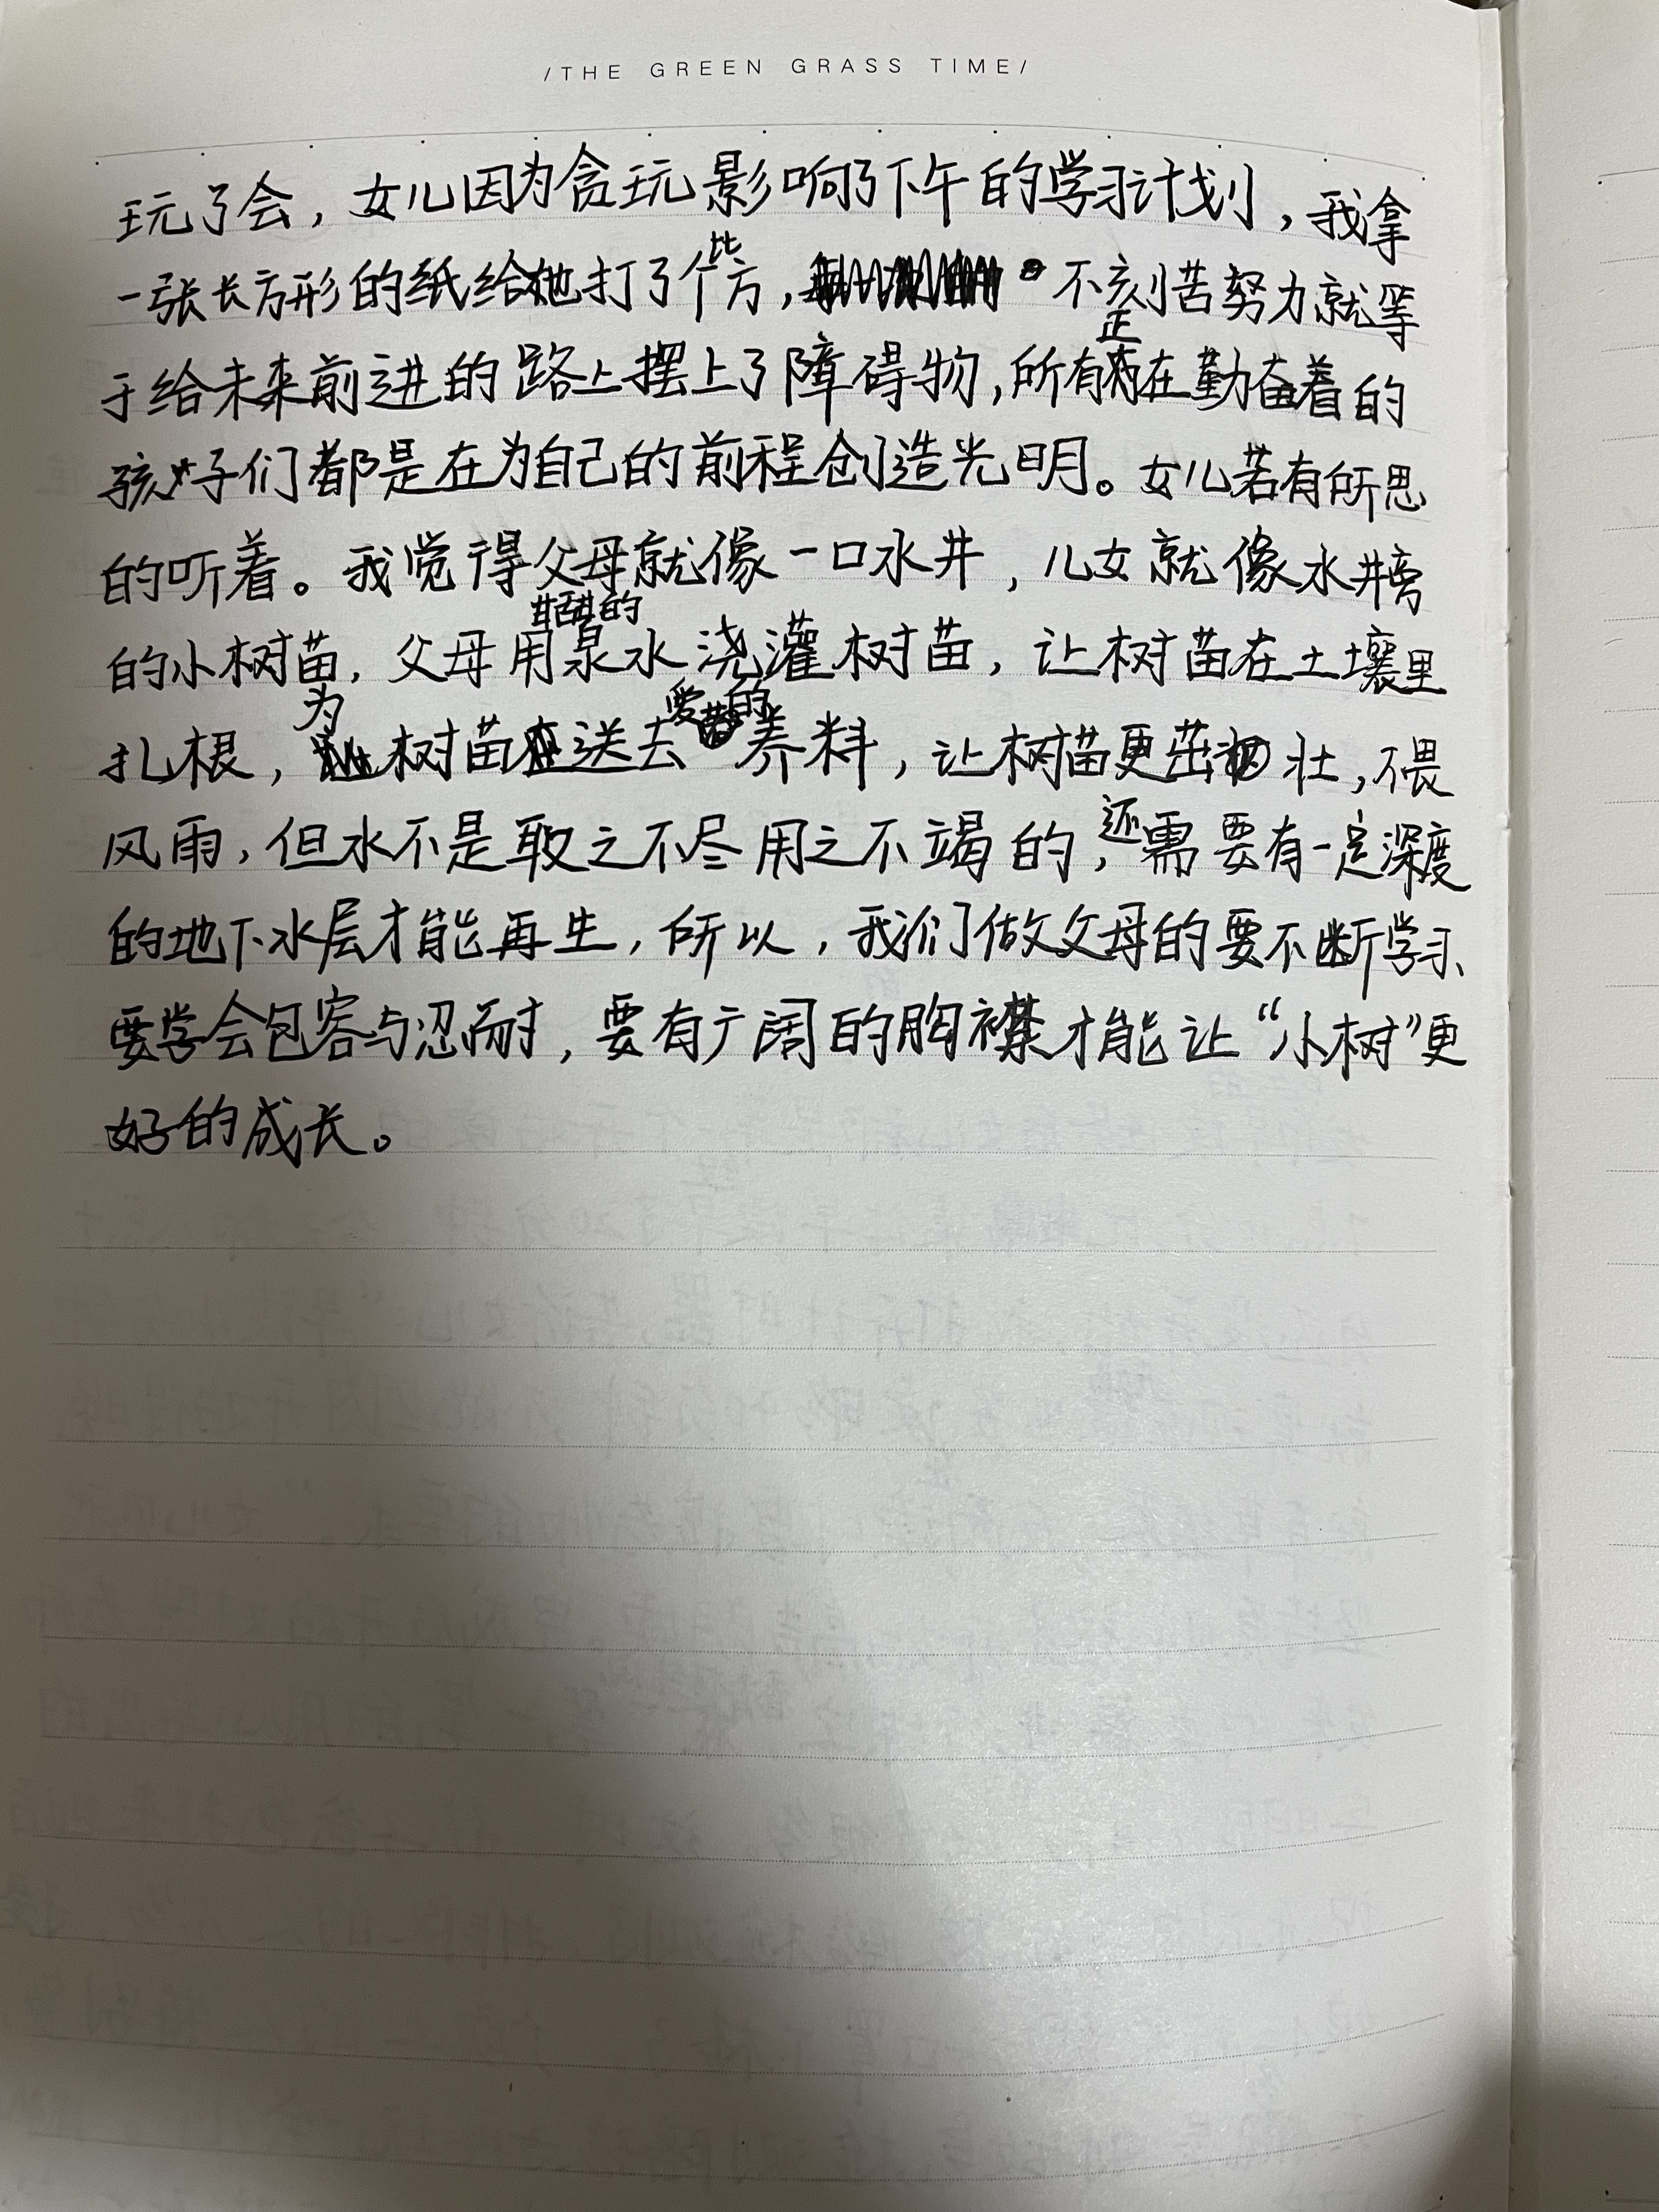 /THE GREEN GRASS TIME/
玩了会，女儿因为贪玩影响了下午的学习计划，我拿
一张长方形的纸给她打了个比方，不刻苦努力就等
于给未来前进的路上摆上了障碍物，所有正在勤奋着的
孩子们都是在为自己的前程创造光明。女儿若有所思
的听着。我觉得父母就像一口水井，儿女就像水井旁
的小树苗，父母用甘甜的泉水浇灌树苗，让树苗在土壤里
扎根，为树苗送去爱的养料，让树苗更茁壮，不畏
风雨，但水不是取之不尽用之不竭的，还需要有一定深度
的地下水层才能再生，所以，我们做父母的要不断学习、
要学会包容与忍耐，要有广阔的胸襟才能让“小树”更
好的成长。